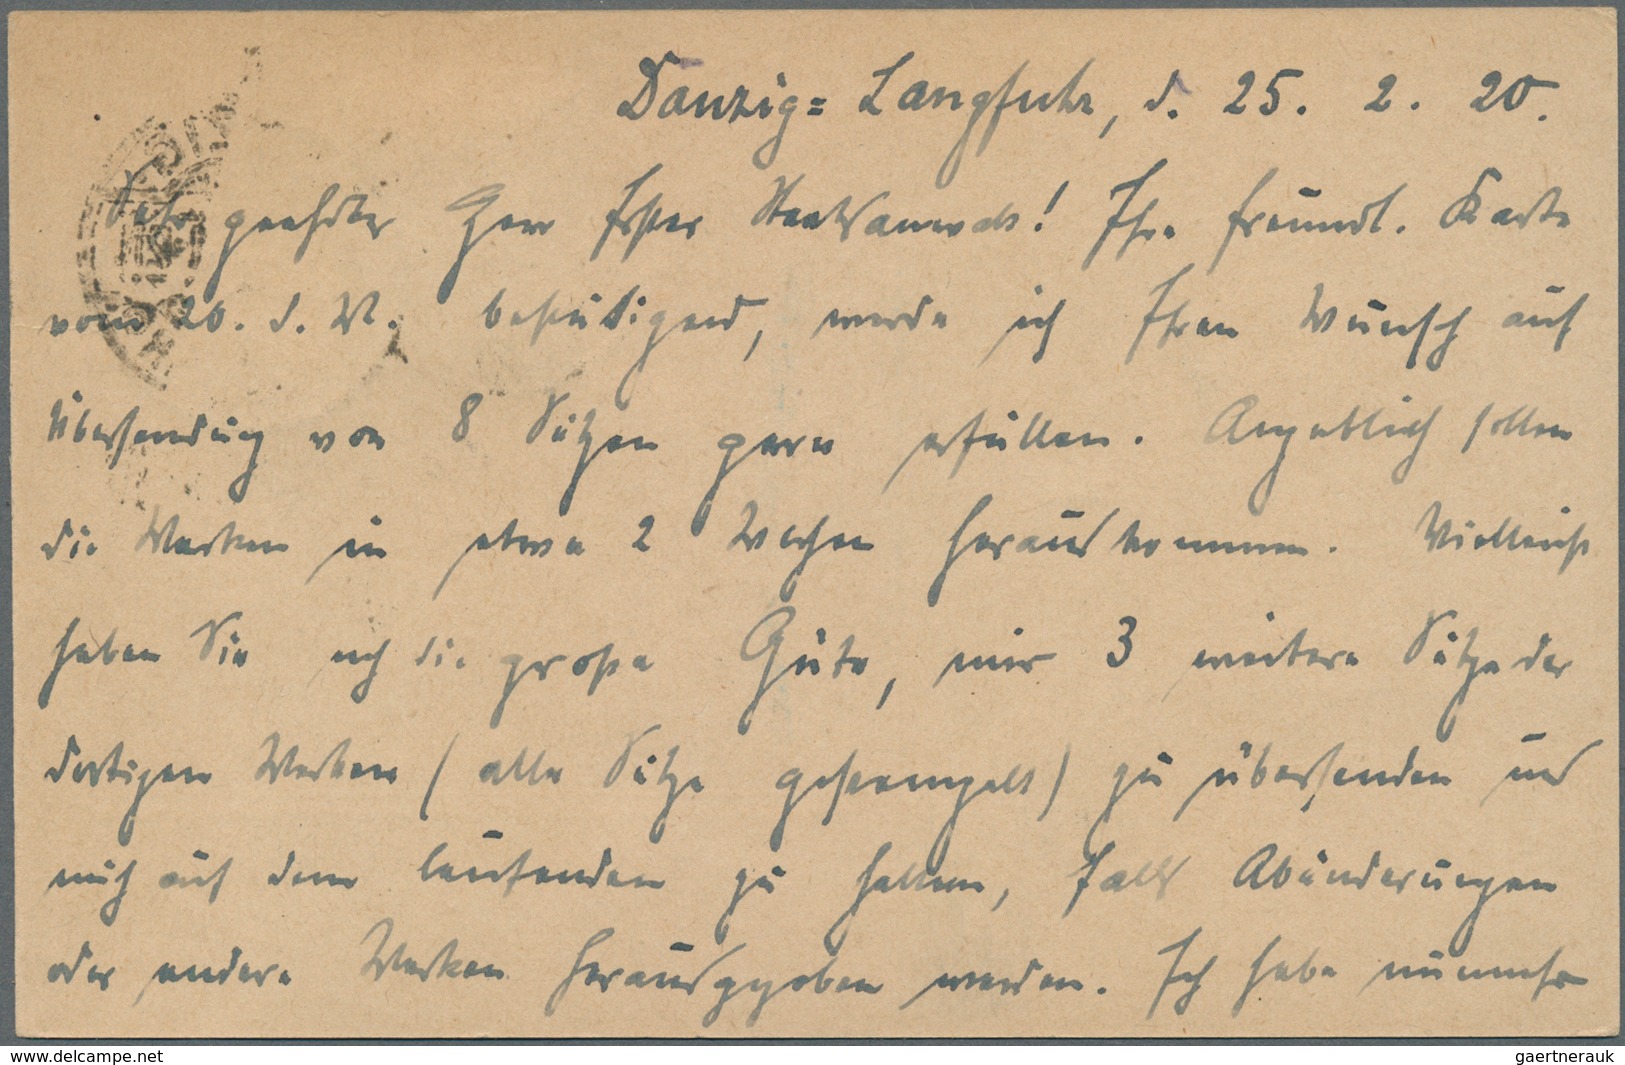 Danzig=Langfuhr, d. 25. 2. 20.
Sehr geehrter Herr Erster Staatsanwalt! Ihre freundl. Karte
vom 20. d. M. bestätigend, werde ich Ihren Wunsch auf
Übersendung von 8 Sätzen gern erfüllen. Angeblich sollen
die Marken in etwa 2 Wochen herauskommen. Vielleicht
haben Sie auch die große Güte, mir 3 weitere Sätze der
dortigen Marken (alle Sätze gestempelt) zu übersenden und
mich auf dem laufenden zu halten, falls Abänderungen
oder andere Marken herausgegeben werden. Ich habe nunmehr
www.delcampe.net
gaertnerauk